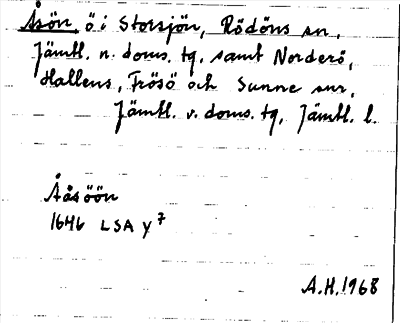 Åsön, ö i Storsjön, Rödöns sn,
Jämtl. n. doms. tg. samt Norderö,
Hallens, Frösö och Sunne snr,
Jämtl. v. doms. tg, Jämtl. l.
Ååsöön
1646 LSA y7
A.H. 1968